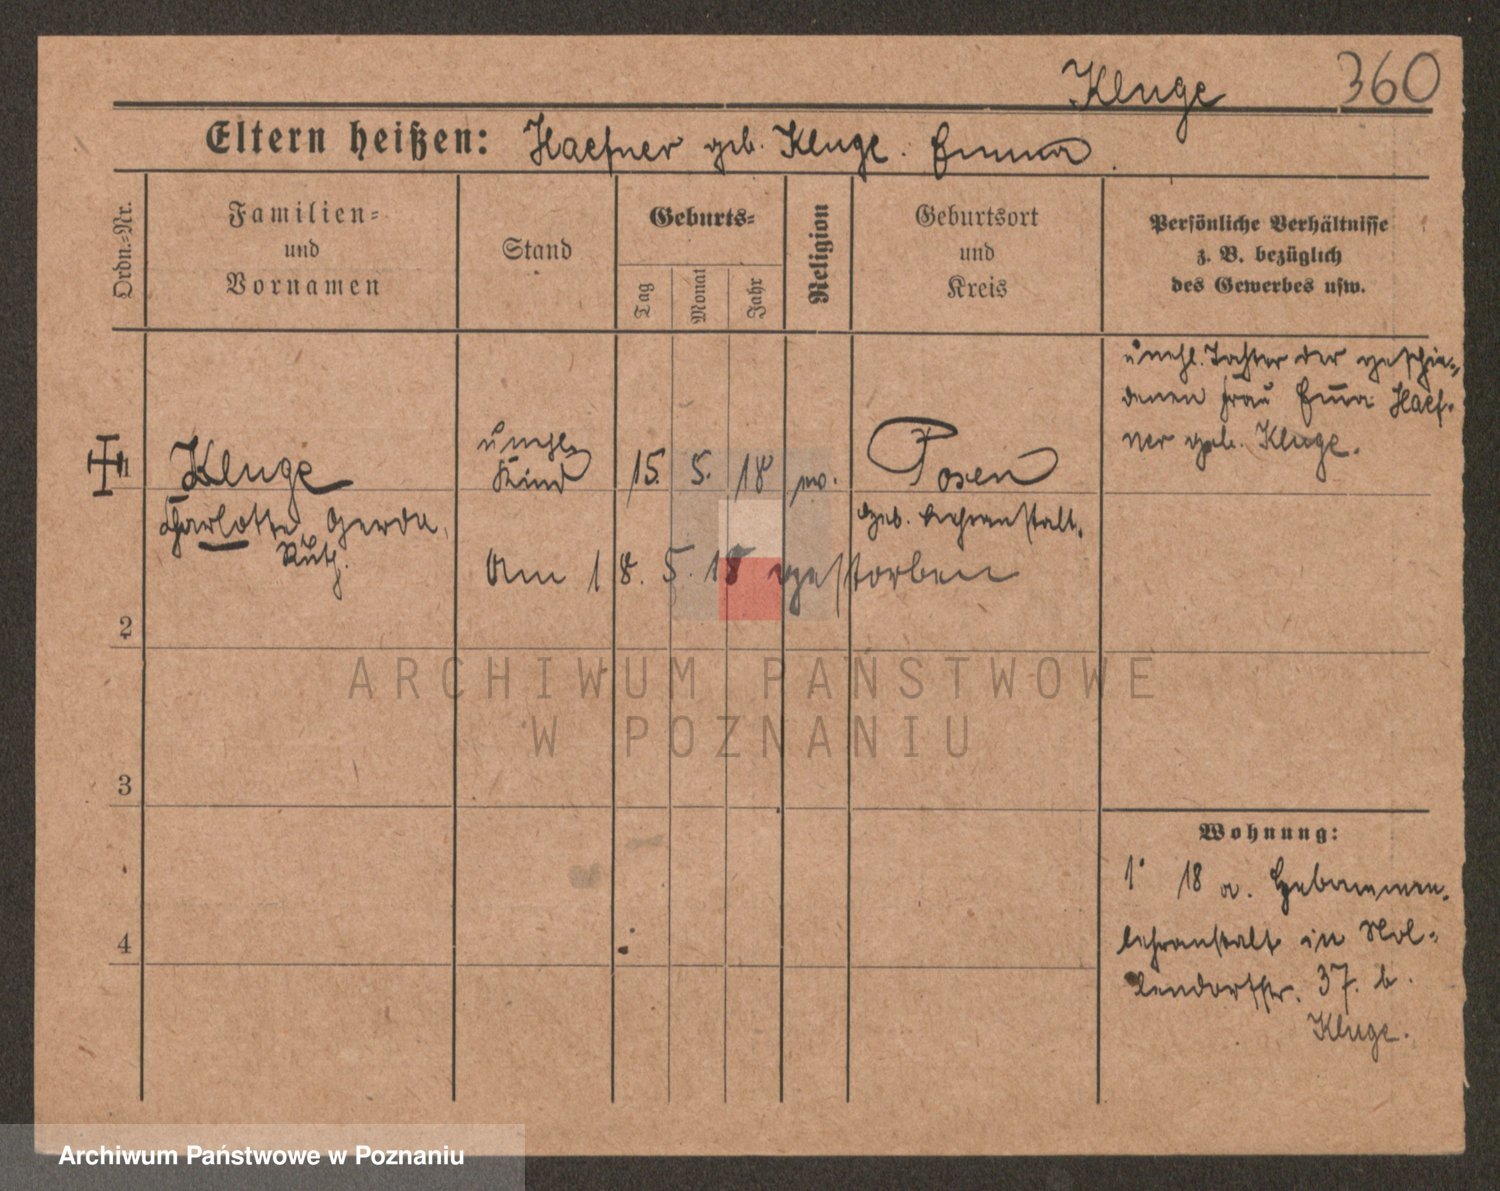 Kluge 360
Eltern heißen: Haefner geb. Kluge. Emma.
Ordn.-Nr.
Familien-
und
Vornamen
Stand
Geburts-
Tag
Monat
Jahr
Religion
Geburtsort
und
Kreis
Persönliche Verhältnisse
z. B. bezüglich
des Gewerbes usw.
1
Kluge
Charlotte, Gerda,
Ruth.
unehl.
Kind
15. 5. 18
Posen
Heb. Lehranstalt.
unehl. Tochter der geschie-
denen Frau Em̅a Haef-
ner geb. Kluge.
Am 18. 5. 18 gestorben
2
3
4
Wohnung:
18 a. Hebammen-
lehranstalt in Nol-
lendorfstr. 37. b.
Kluge.
ARCHIWUM PAŃSTWOWE
W POZNANIU
Archiwum Państwowe w Poznaniu